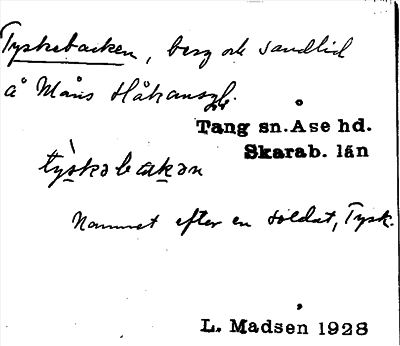 Tyskebacken, berg och sandlid
å Måns Håkansg.
Tang sn. Åse hd.
Skarab. län
tỳskəbakən
Namnet efter en soldat, Tysk.
L. Madsen 1928